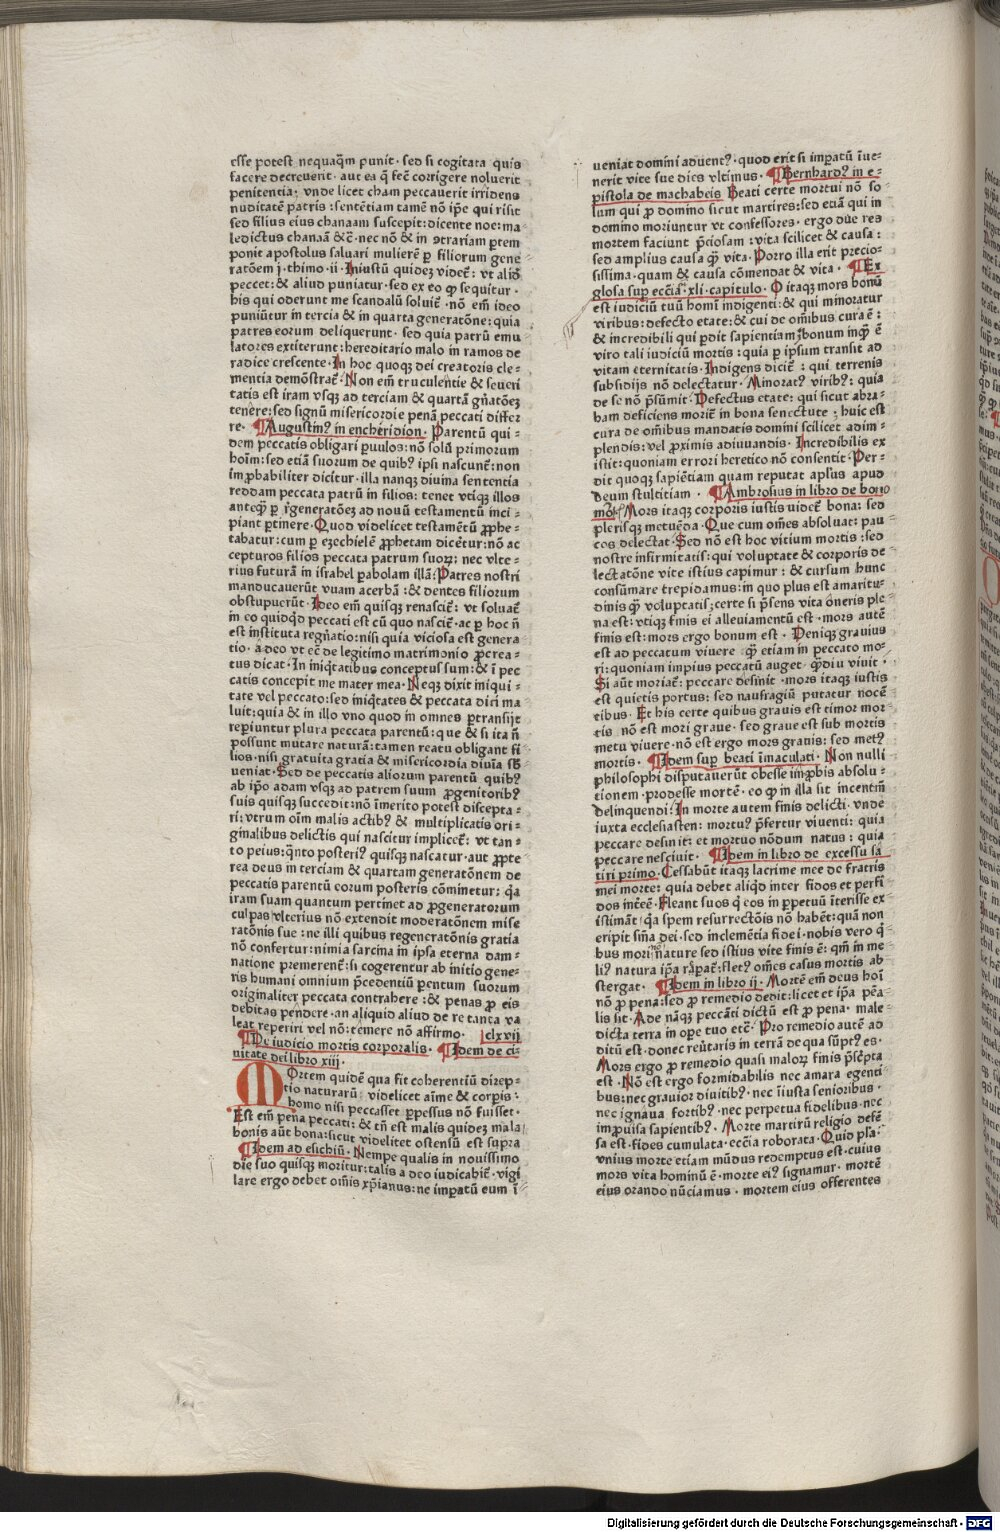 esse potest nequaq̃m punit · sed si cogitata quis
facere decreuerit · aut ea q̃ fec̃ corrigere noluerit
penitentia; vnde licet cham peccauerit irridens
nuditatẽ patris : sentẽtiam tamẽ nõ ip̃e qui risit
sed filius eius chanaam suscepit: dicente noe: ma-
ledictus chanaã &c̃ · nec nõ & in ↄtrariam p̱tem
ponit apostolus saluari mulierẽ p̱ filiorum gene
ratõem j · thimo · ii · Iniustũ quidez videt̃ : vt aliꝰ
peccet: & aliud puniatur · sed ex eo ꝙ sequitur ·
his qui oderunt me scandalũ soluit̃ · nõ em̃ ideo
puniũtur in tercia & in quarta generatõne: quia
patres eorum deliquerunt · sed quia patrũ emu
latores extiterunt: hereditario malo in ramos de
radice crescente · In hoc quoqz dei creatoris cle-
mentia demõstrat̃ · Non em̃ truculentie & seueri
tatis est iram vsqz ad terciam & quartã gñatõez
tenere: sed signũ misericordie penã peccati differ
re · ¶Augustinꝰ in encheridion · Parentũ qui-
dem peccatis obligari p̱uulos: nõ solũ primorum
hoĩm: sed etiã suorum de quibꝰ ipsi nascunt̃: non
improbabiliter dicitur · illa nanqz diuina sententia
reddam peccata patrũ in filios: tenet vtiqz illos
anteq̃ p̱ rg̃eneratõez ad nouũ testamentũ inci-
piant p̱tinere · Quod videlicet testamẽtũ ꝓphe-
tabatur: cum p̱ ezechielẽ ꝓphetam dicẽtur: nõ ac
cepturos filios peccata patrum suorꝝ: nec vlte-
rius futurã in israhel p̱abolam illã: Patres nostri
manducauerũt vuam acerbã : & dentes filiorum
obstupuerũt · Ideo em̃ quisqz renascit̃: vt soluat̃
in eo quidq̃d peccati est cũ quo nascit̃ · ac p̱ hoc ñ
est instituta regñatio: nisi quia viciosa est genera
tio · adeo vt ec̃ de legitimo matrimonio ꝓcrea-
tus dicat · In iniq̃tatibus conceptus sum: & ĩ pec
catis concepit me mater mea · Neqz dixit iniqui-
tate vel peccato: sed iniq̃tates & peccata dici ma
luit: quia & in illo vno quod in omnes p̱transijt
rep̱iuntur plura peccata parentũ: que & si ita ñ
possunt mutare naturã: tamen reatu obligant fi
lios · nisi gratuita gratia & misericordia diuĩa sb̃
ueniat · Sed de peccatis aliorum parentũ quibꝰ
ab ip̃o adam vsqz ad patrem suum ꝓgenitoribꝰ
suis quisqz succedit: nõ ĩmerito potest discepta-
ri: vtrum oĩm malis actibꝰ & multiplicatis ori-
ginalibus delictis qui nascitur implicet̃: vt tan-
to peius: q̃nto posteriꝰ quisqz nascatur · aut ꝓpte
rea deus in terciam & quartam generatõnem de
peccatis parentũ eorum posteris cõminetur: q̃a
iram suam quantum pertinet ad ꝓgeneratorum
culp̱as vlterius nõ extendit moderatõnem mise
ratõnis sue: ne illi quibus regeneratõnis gratia
nõ confertur: nimia sarcina in ipsa eterna dam-
natione premerent̃: si cogerentur ab initio gene-
ris humani omnium p̃cedentiũ p̱entum suorum
originaliter peccata contrahere: & penas ꝓ eis
debitas pendere · an aliquid aliud de re tanta va
leat reperiri vel nõ: temere nõ affirmo · clxvij
¶De iudicio mortis corporalis · ¶Idem de ci-
uitate dei libro xiij ·
MOrtem quidẽ qua fit coherentiũ direp-
tio naturarũ; videlicet aĩme & corp̱is:
homo nisi peccasset p̱pessus nõ fuisset ·
Est em̃ pena peccati: & tñ est malis quidez mala
bonis aũt bona: sicut videlitet ostensũ est supra
¶Idem ad esichiũ · Nempe qualis in nouissimo
die suo quisqz moritur: talis a deo iudicabit̃ · vigi
lare ergo debet oĩnis xp̃ianus: ne imp̱atũ eum ĩ
ueniat domini aduentꝰ · quod erit si imp̱atũ ĩue-
nerit vite sue dies vltimus · ¶Bernhardꝰ in e-
pistola de machabeis Beati certe mortui nõ so-
lum qui ꝓ domino sicut martires: sed etiã qui in
domino moriuntur vt confessores · ergo due res
mortem faciunt p̃ciosam : vita scilicet & causa :
sed amplius causa q̃ vita · Porro illa erit precio-
sissima · quam & causa cõmendat & vita · ¶Ex
glosa sup̱ ecc̃iã · xli · capitulo · O itaqz mors bonũ
est iudiciũ tuũ homĩ indigenti: & qui minoratur
viribus: defecto etate: & cui de om̃ibus cura ẽ :
& incredibili qui p̱dit sapientiam bonum inq̃ ẽ
viro tali iudiciũ mortis : quia p̱ ipsum transit ad
vitam eternitatis · Indigens dicit̃ : qui terrenis
subsidijs nõ delectatur · Minoratꝰ viribꝰ: quia
de se nõ p̃sũmit · Defectus etate: qui sicut abra-
ham deficiens morit̃ in bona senectute ; huic est
cura de om̃ibus mandatis domini scilicet adim-
plendis: vel ꝓximis adiuuandis · Incredibilis ex
istit: quoniam errori heretico nõ consentit · Per-
dit quoqz sapiẽtiam quam reputat apl̃us apud
deum stultitiam · ¶Ambrosius in libro de bono
mõꝉ · Mors itaqz corporis iustis videt̃ bona: sed
plerisqz metuẽda · Que cum om̃es absoluat: pau
cos delectat · Sed nõ est hoc vitium mortis : sed
nostre infirmitatis: qui voluptate & corporis de
lectatõne vite istius capimur : & cursum hunc
consũmare trepidamus: in quo plus est amaritu-
dinis q̃ voluptatis; certe si p̃sens vita oneris ple
na est: vtiqz finis ei alleuiamentũ est · mors autẽ
finis est: mors ergo bonum est · Deniqz grauius
est ad peccatum viuere · q̃ etiam in peccato mo-
ri: quoniam impius peccatũ auget · q̃diu viuit ·
Si aũt moriat̃: peccare desinit · mors itaqz iustis
est quietis portus: sed naufragiũ putatur nocẽ
tibus · Et his certe quibus grauis est timor mor-
tis · nõ est mori graue · sed graue est sub mortis
metu viuere · nõ est ergo mors grauis: sed metꝰ
mortis · ¶Idem sup̱ beati ĩmaculati · Non nulli
philosophi disputauerũt obesse imp̱bis absolu-
tionem · ꝓdesse mortẽ · eo ꝙ in illa sit incentiũ
delinquendi: In morte autem finis delicti · vnde
iuxta ecclesiasten: mortuꝰ p̃fertur viuenti: quia
peccare desinit: et mortuo nõdum natus : quia
peccare nesciuit · ¶Idem in libro de excessu sa
tiri primo · Cessabũt itaqz lacrime mee de fratris
mei morte: quia debet aliq̃d inter fidos et perfi
dos int̃eẽ · Fleant suos q̃ eos in p̱petuũ ĩterisse ex
istimãt · q̃a spem resurrectõis nõ habẽt: quã non
eripit sñia dei · sed inclemẽtia fidei · nobis vero q̃-
bus mori nõ nature sed istius vite finis ẽ: qm̃ in me
liꝰ natura ip̃a rãp̱at̃: fletꝰ om̃es casus mortis ab
stergat · ¶Idem in libro ij · Mortẽ em̃ deus hoĩ
nõ ꝓ pena: sed ꝓ remedio dedit: licet et ip̃a pẽa-
lis sit · Ade nãqz peccãti dictũ est ꝓ pena · male-
dicta terra in op̱e tuo etc̃ · Pro remedio autẽ ad
ditũ est · donec reũtaris in terrã de qua sũptꝰ es ·
Mors ergo ꝓ remedio quasi malorꝝ finis p̃sc̃pta
est · Nõ est ergo formidabilis nec amara egenti-
bus: nec grauior diuitibꝰ · nec ĩiusta senioribus ·
nec ignaua fortibꝰ · nec perpetua fidelibus · nec
imp̱uisa sapientibꝰ · Morte martirũ religio defẽ
sa est · fides cumulata · ecc̃ia roborata · Quid p̃sa ·
vnius morte etiam mũdus redemptus est · cuius
mors vita hominũ ẽ · morte eiꝰ signamur · mortẽ
eius orando nũciamus · mortem eius offerentes
Digitalisierung gefördert durch die Deutsche Forschungsgemeinschaft - DFG